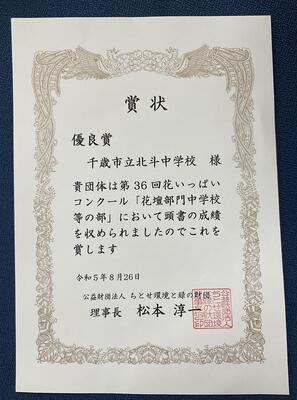 賞状
優良賞
千歳市立北斗中学校 様
貴団体は第36回花いっぱい
コンクール「花壇部門中学校
等の部」において頭書の成績
を収められましたのでこれを
賞します
令和5年8月26日
公益財団法人 ちとせ環境と緑の財団
理事長 松本 淳一